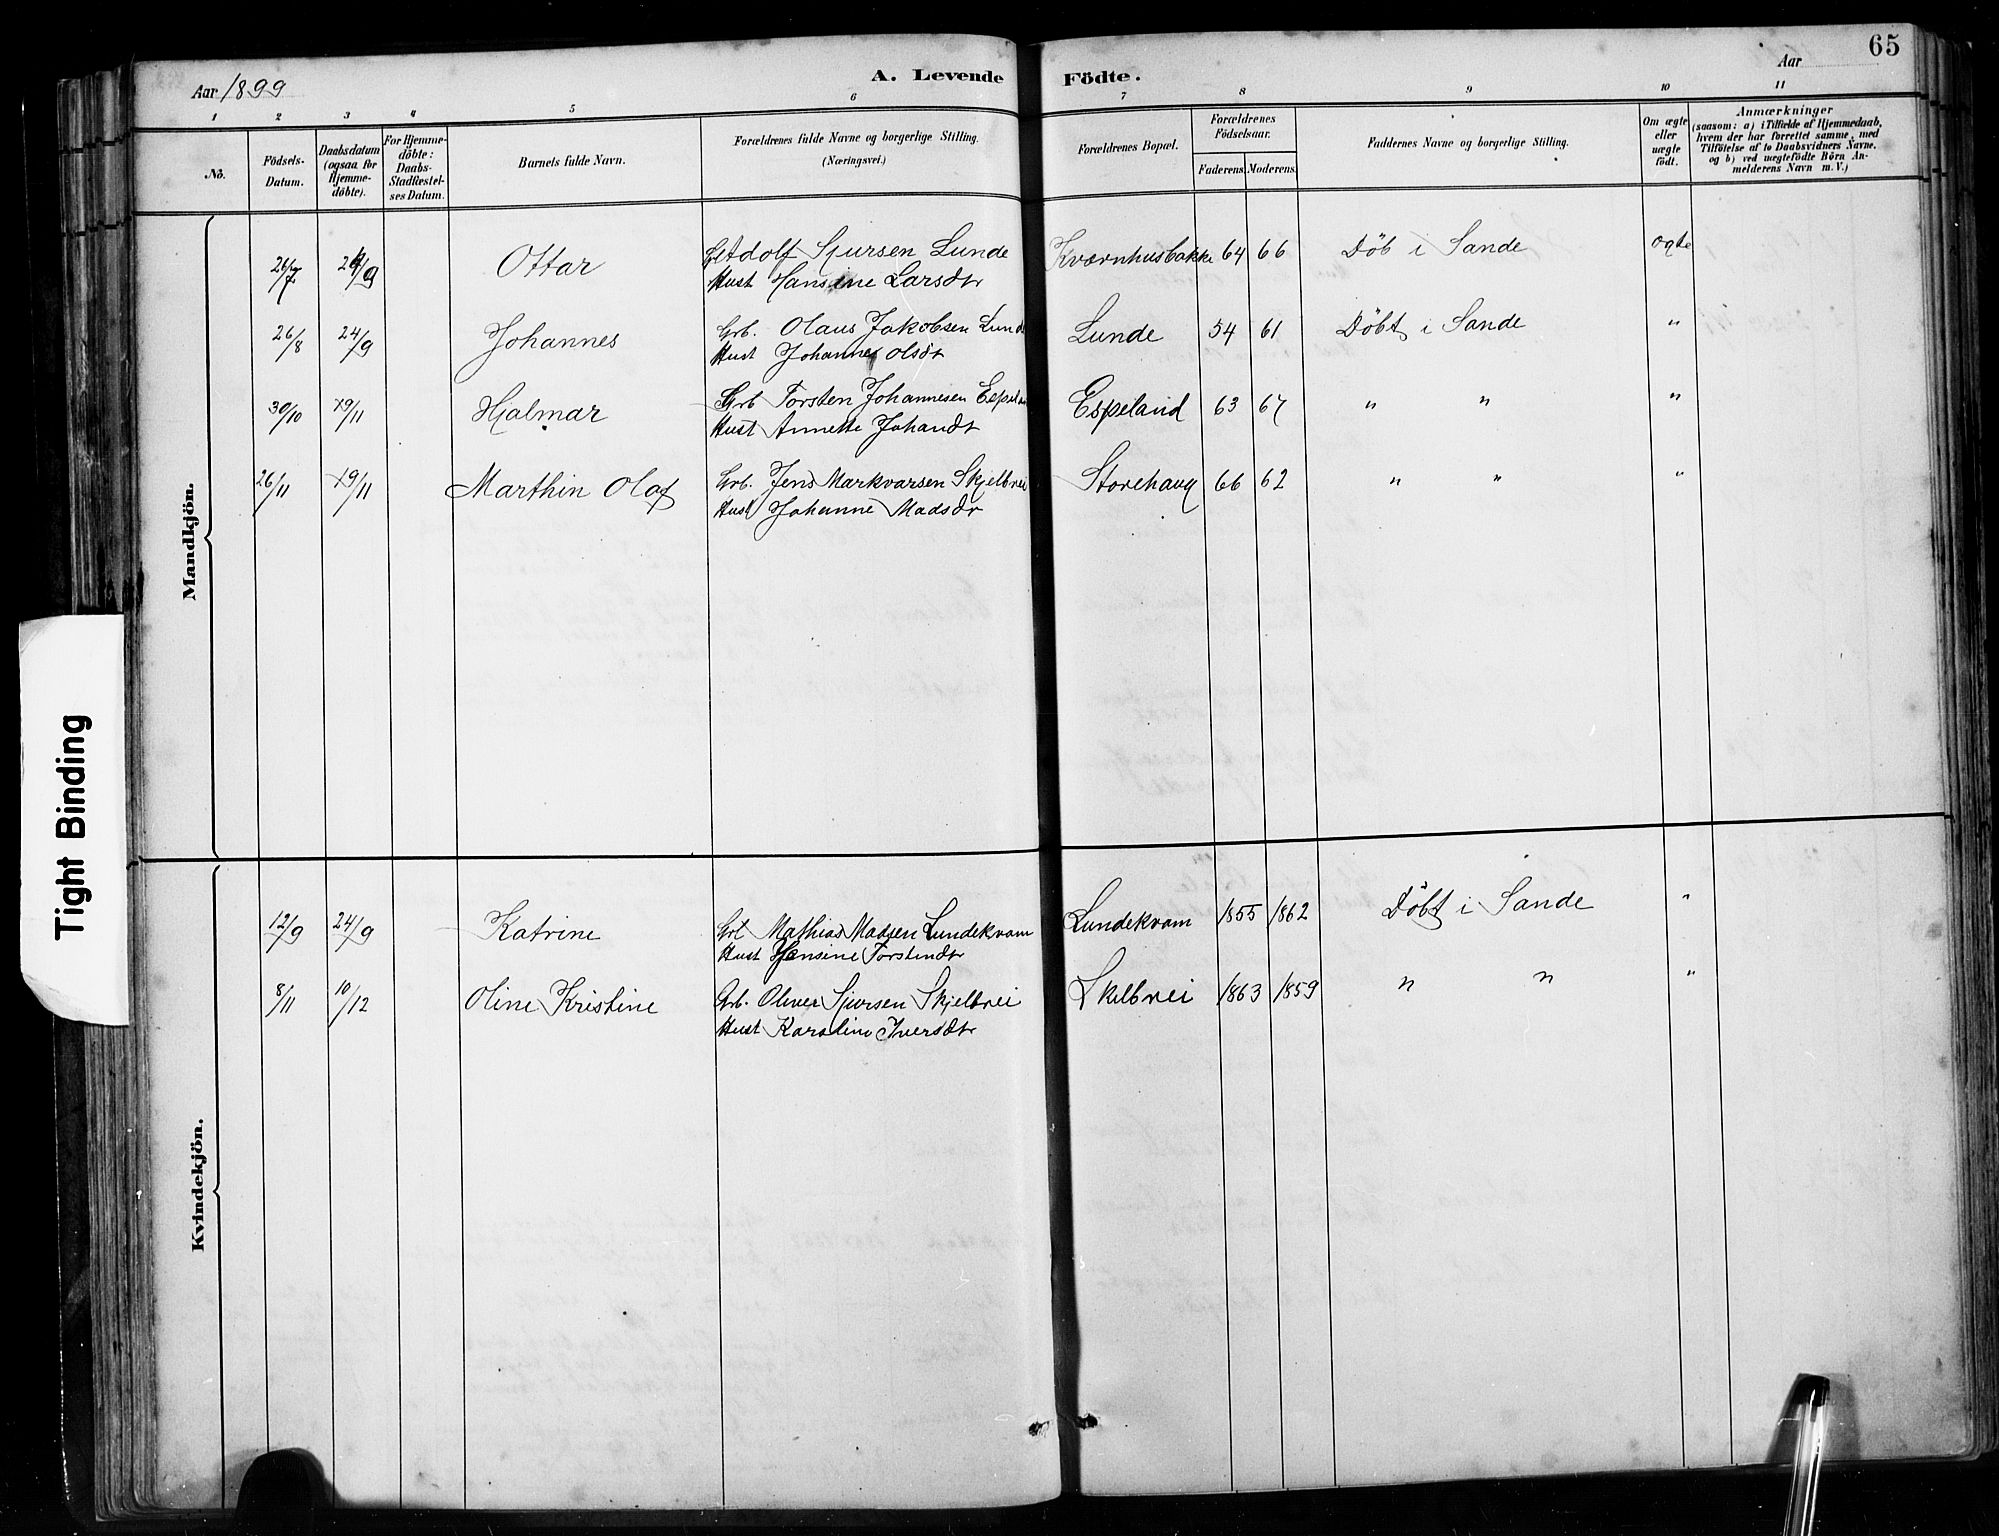 65
Aar 1899
A. Levende Födte.
Aar
1 2 3 4 5 6 7 8 9 10 11
No.
Födsels-
Datum.
Daabsdatum
(ogsaa for
Hjemme-
döbte).
For Hjemme-
döbte:
Daabs-
Stadfæstel-
ses Datum.
Barnets fulde Navn.
Forældrenes fulde Navne og borgerlige Stilling.
(Næringsvei.)
Forældrenes Bopæl.
Forældrenes
Födselsaar.
Faderens. Moderens.
Faddernes Navne og borgerlige Stilling.
Om ægte
eller
uægte
födt.
Anmærkninger
(saasom: a) i Tilfælde af Hjemmedaab,
hvem der har forrettet samme, med
Tilföielse af to Daabsvidners Navne.
og b) ved uægtefödte Börn An-
melderens Navn m.V.)
Mandkjön.
26/7 24/9 Ottar Adolf Sjursen Lunde Kværnhusbakke 64 66 Döb i Sande ægte
Hust Hansine Larsdtr
26/8 24/9 Johannes Grb. Olaus Jakobsen Lunde Lunde 54 61 Döbt i Sande "
Hust Johanne Olsdt
30/10 19/11 Hjalmar Grb Torsten Johannesen Espeland Espeland 63 67 " " "
Hust Annette Johandt
26/11 19/11 Marthin Olaf Grb. Jens Markvarsen Skjelbrei Storehaug 66 62 " " "
Hust Johanne Madsdr
Kvindekjön.
12/9 24/9 Katrine Grb Mathias Madsen Lundekvam Lundekvam 1855 1862 Döbt i Sande "
Hust Hansine Torstendtr
8/11 10/12 Oline Kristine Grb. Oliver Sjursen Skjelbrei Skelbrei 1863 1859 " " "
Hust Karoline Iversdtr
Tight Binding